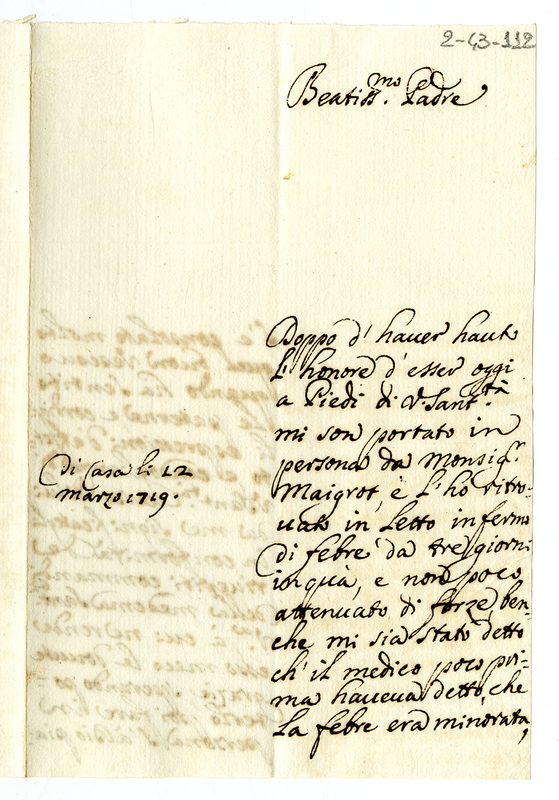 2-43-112
Beatiss.mo Padre
Doppo d' haver hauto
L' honore d' esser oggi
a Piedi di V. Sant.tà
mi son portato in
persona da Monsig.r
Maigrot, e L' ho ritro-
uato in Letto infermo
di febre da tre giorni
in quà, e non poco
attenuato di forze, ben-
che mi sia stato detto
ch' il medico poco pri-
ma haveva detto, che
La febre era minorata,
Di Casa li 12
marzo 1719.